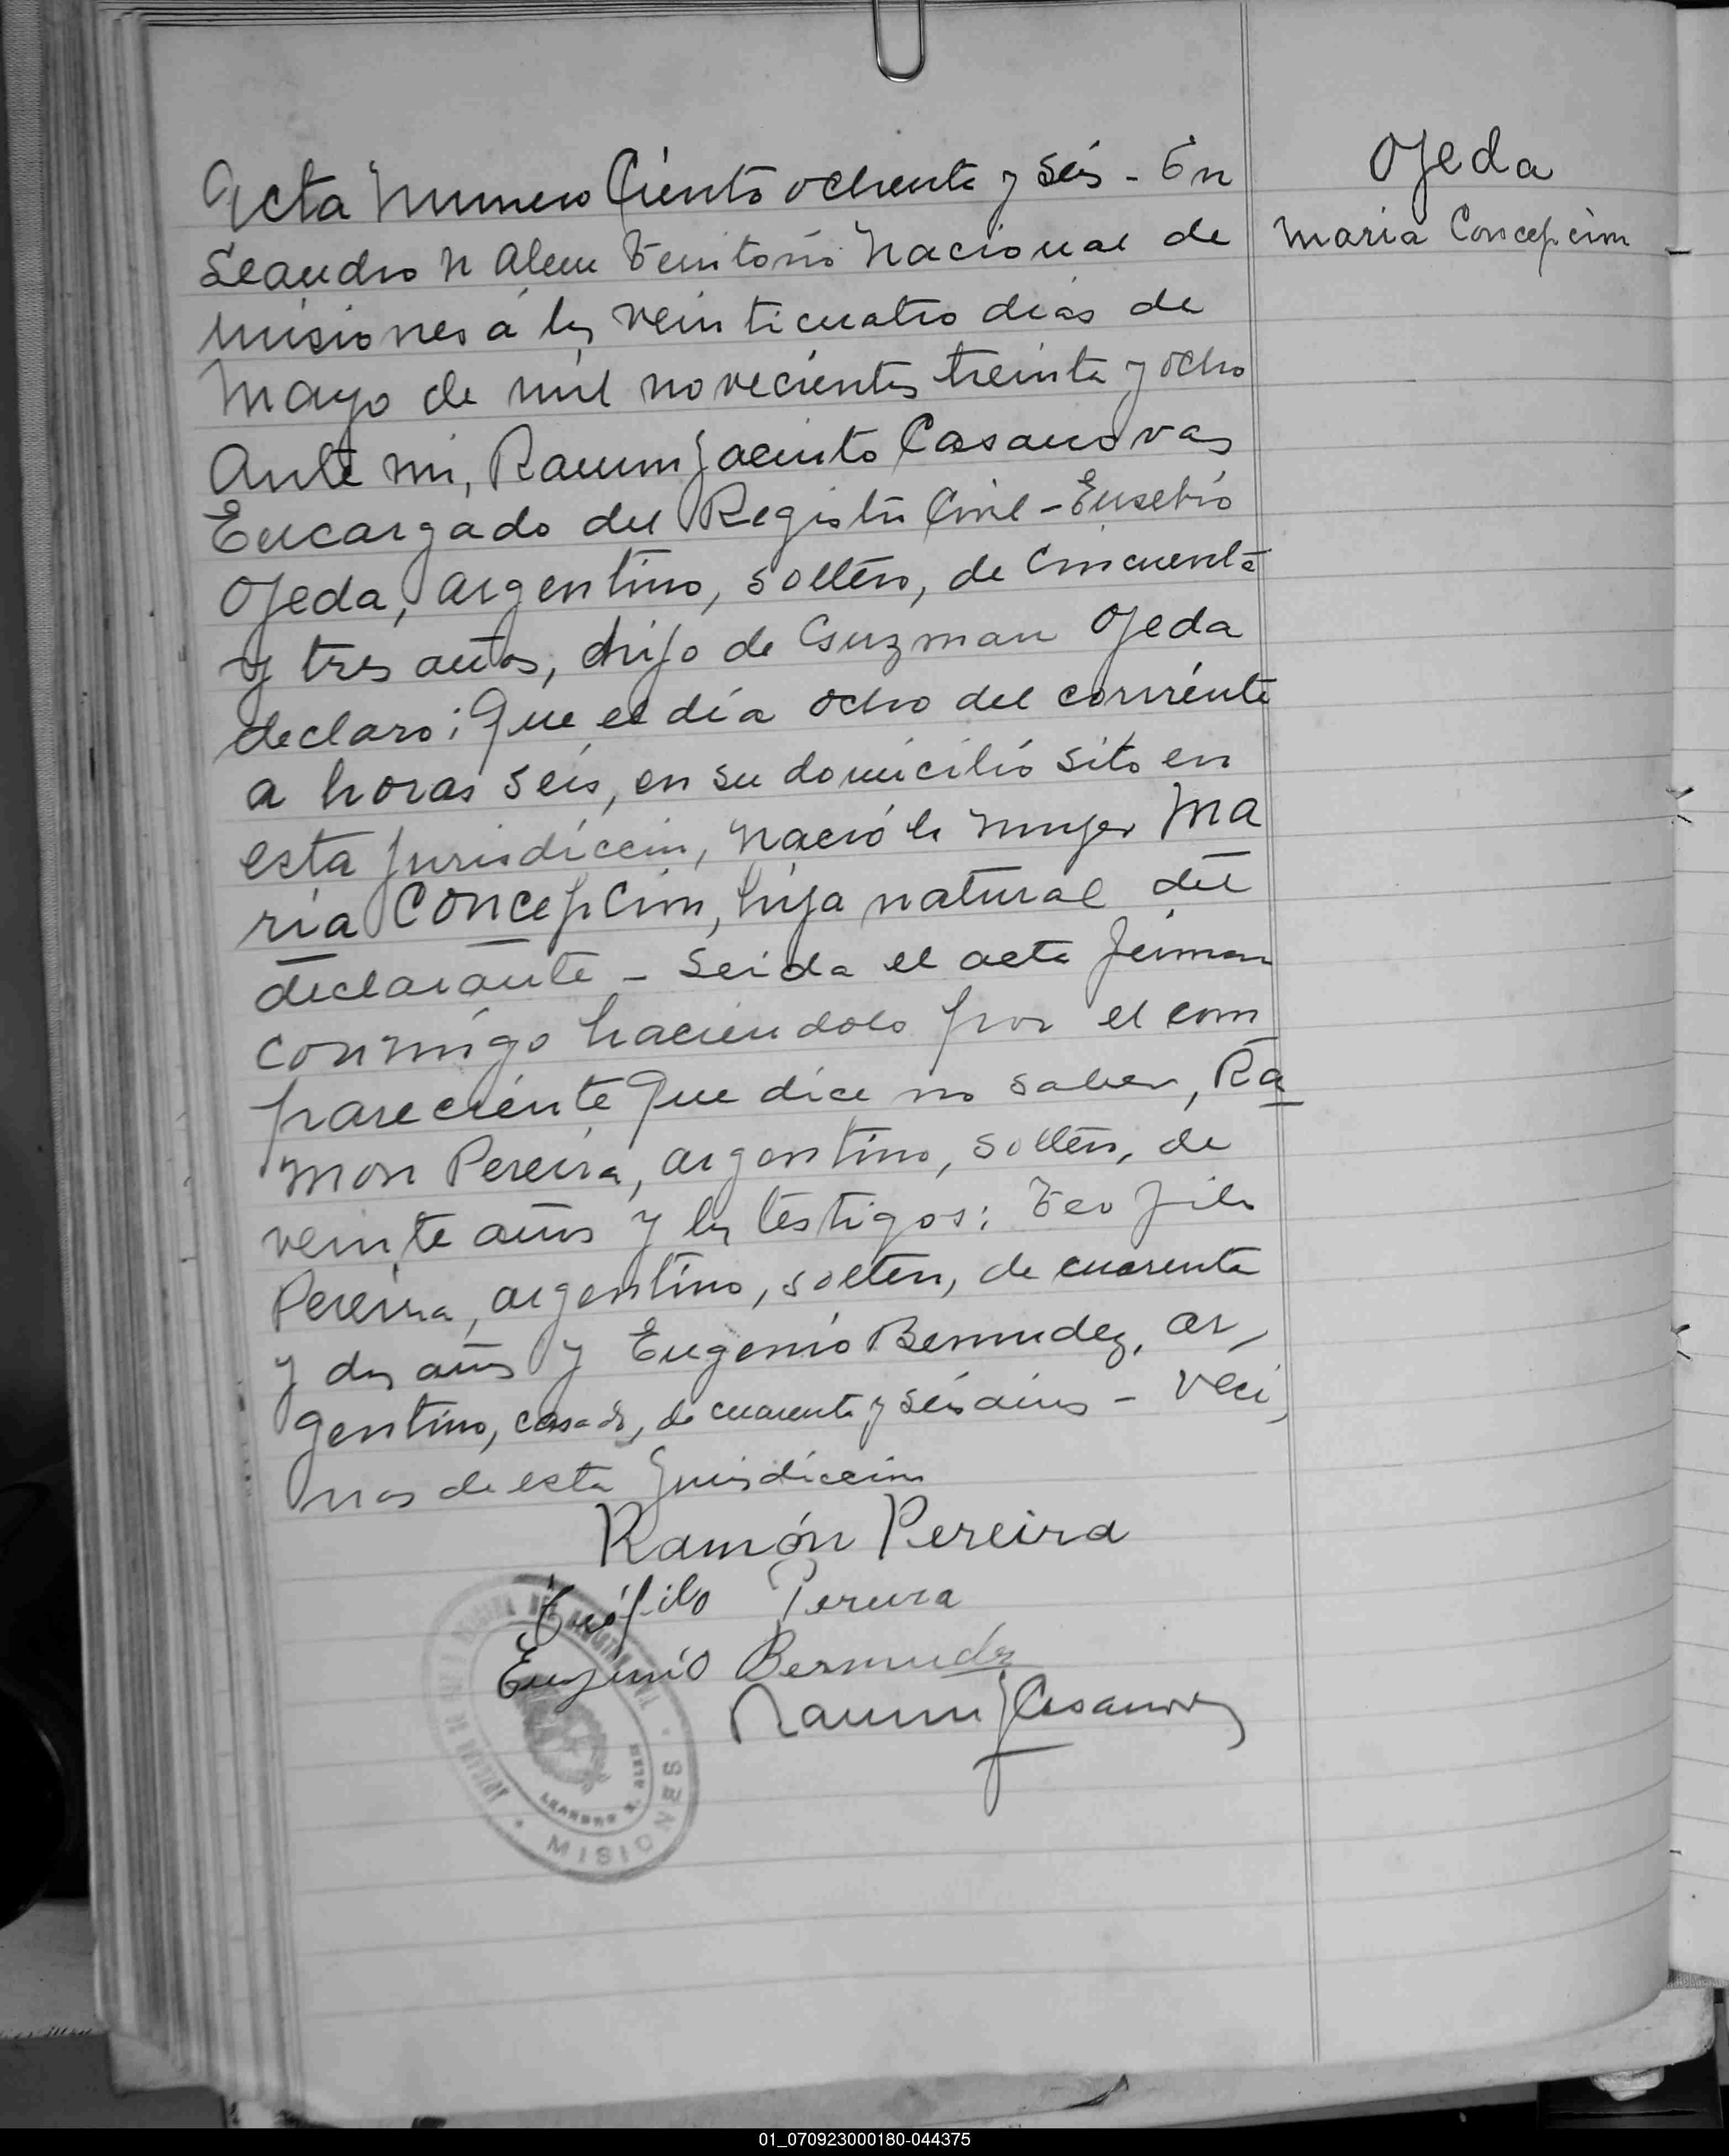 Ojeda
Maria Concepcion
Acta Numero Ciento ochenta y seis - En
Leandro N Alem Territorio Nacional de
Misiones á los veinticuatro dias de
Mayo de mil novecientos treinta y ocho
Ante mi, Ramon Jacinto Casanovas
Encargado del Registro Civil - Eusebio
Ojeda, argentino, soltero, de Cincuenta
y tres años, hijo de Guzman Ojeda
declaro: Que el día ocho del corriente
a horas seis, en su domicilio sito en
esta Jurisdiccion, nació la mujer Ma
ria Concepcion, hija natural del
declarante - Leida el acta firman
conmigo haciendolo por el com
pareciente que dice no saber, Ra
mon Pereira, argentino, soltero, de
veinte años y los testigos: Teofilo
Pereira, argentino, soltero, de cuarenta
y dos años y Eugenio Bermudez, ar
gentino, casado, de cuarenta y seis años - Veci
nos de esta Jurisdiccion
Ramón Pereira
Teófilo Pereira
Eugenio Bermudez
Ramon J Casanovas
LEANDRO N. ALEM
MISIONES
01_070923000180-044375